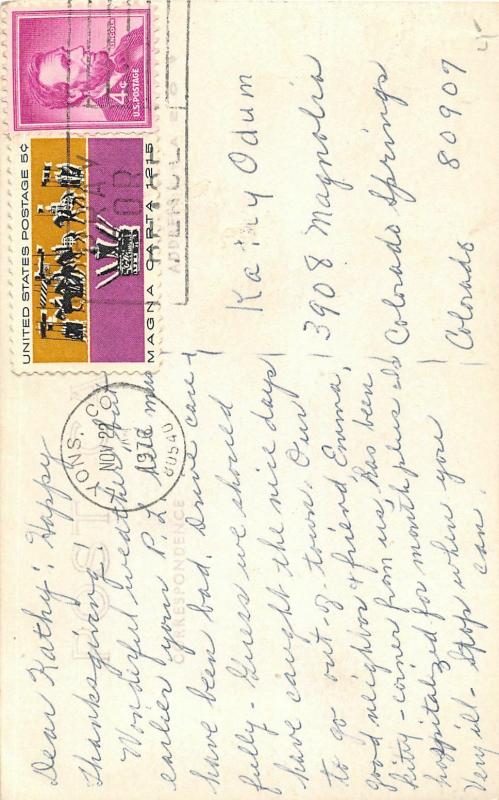 Dear Kathy: Happy
Thanksgiving.
Wonderful weather
earlier your P.L.
have been bad. Drive care-
fully - Guess we should
have caught the nice days
to go out-of-town. Our
good neighbor & friend Emma,
kitty-corner from us, has been
hospitalized for month plus &
Very ill - Stop when you
can.
Kathy Odum
3908 Magnolia
Colorado Springs
Colorado 80907
POST
CORRESPONDENCE
ADDRESS
LYONS, CO
NOV 22
1978
80540
PRAY
FOR
4¢
U.S. POSTAGE
LINCOLN
UNITED STATES POSTAGE 5¢
MAGNA CARTA 1215